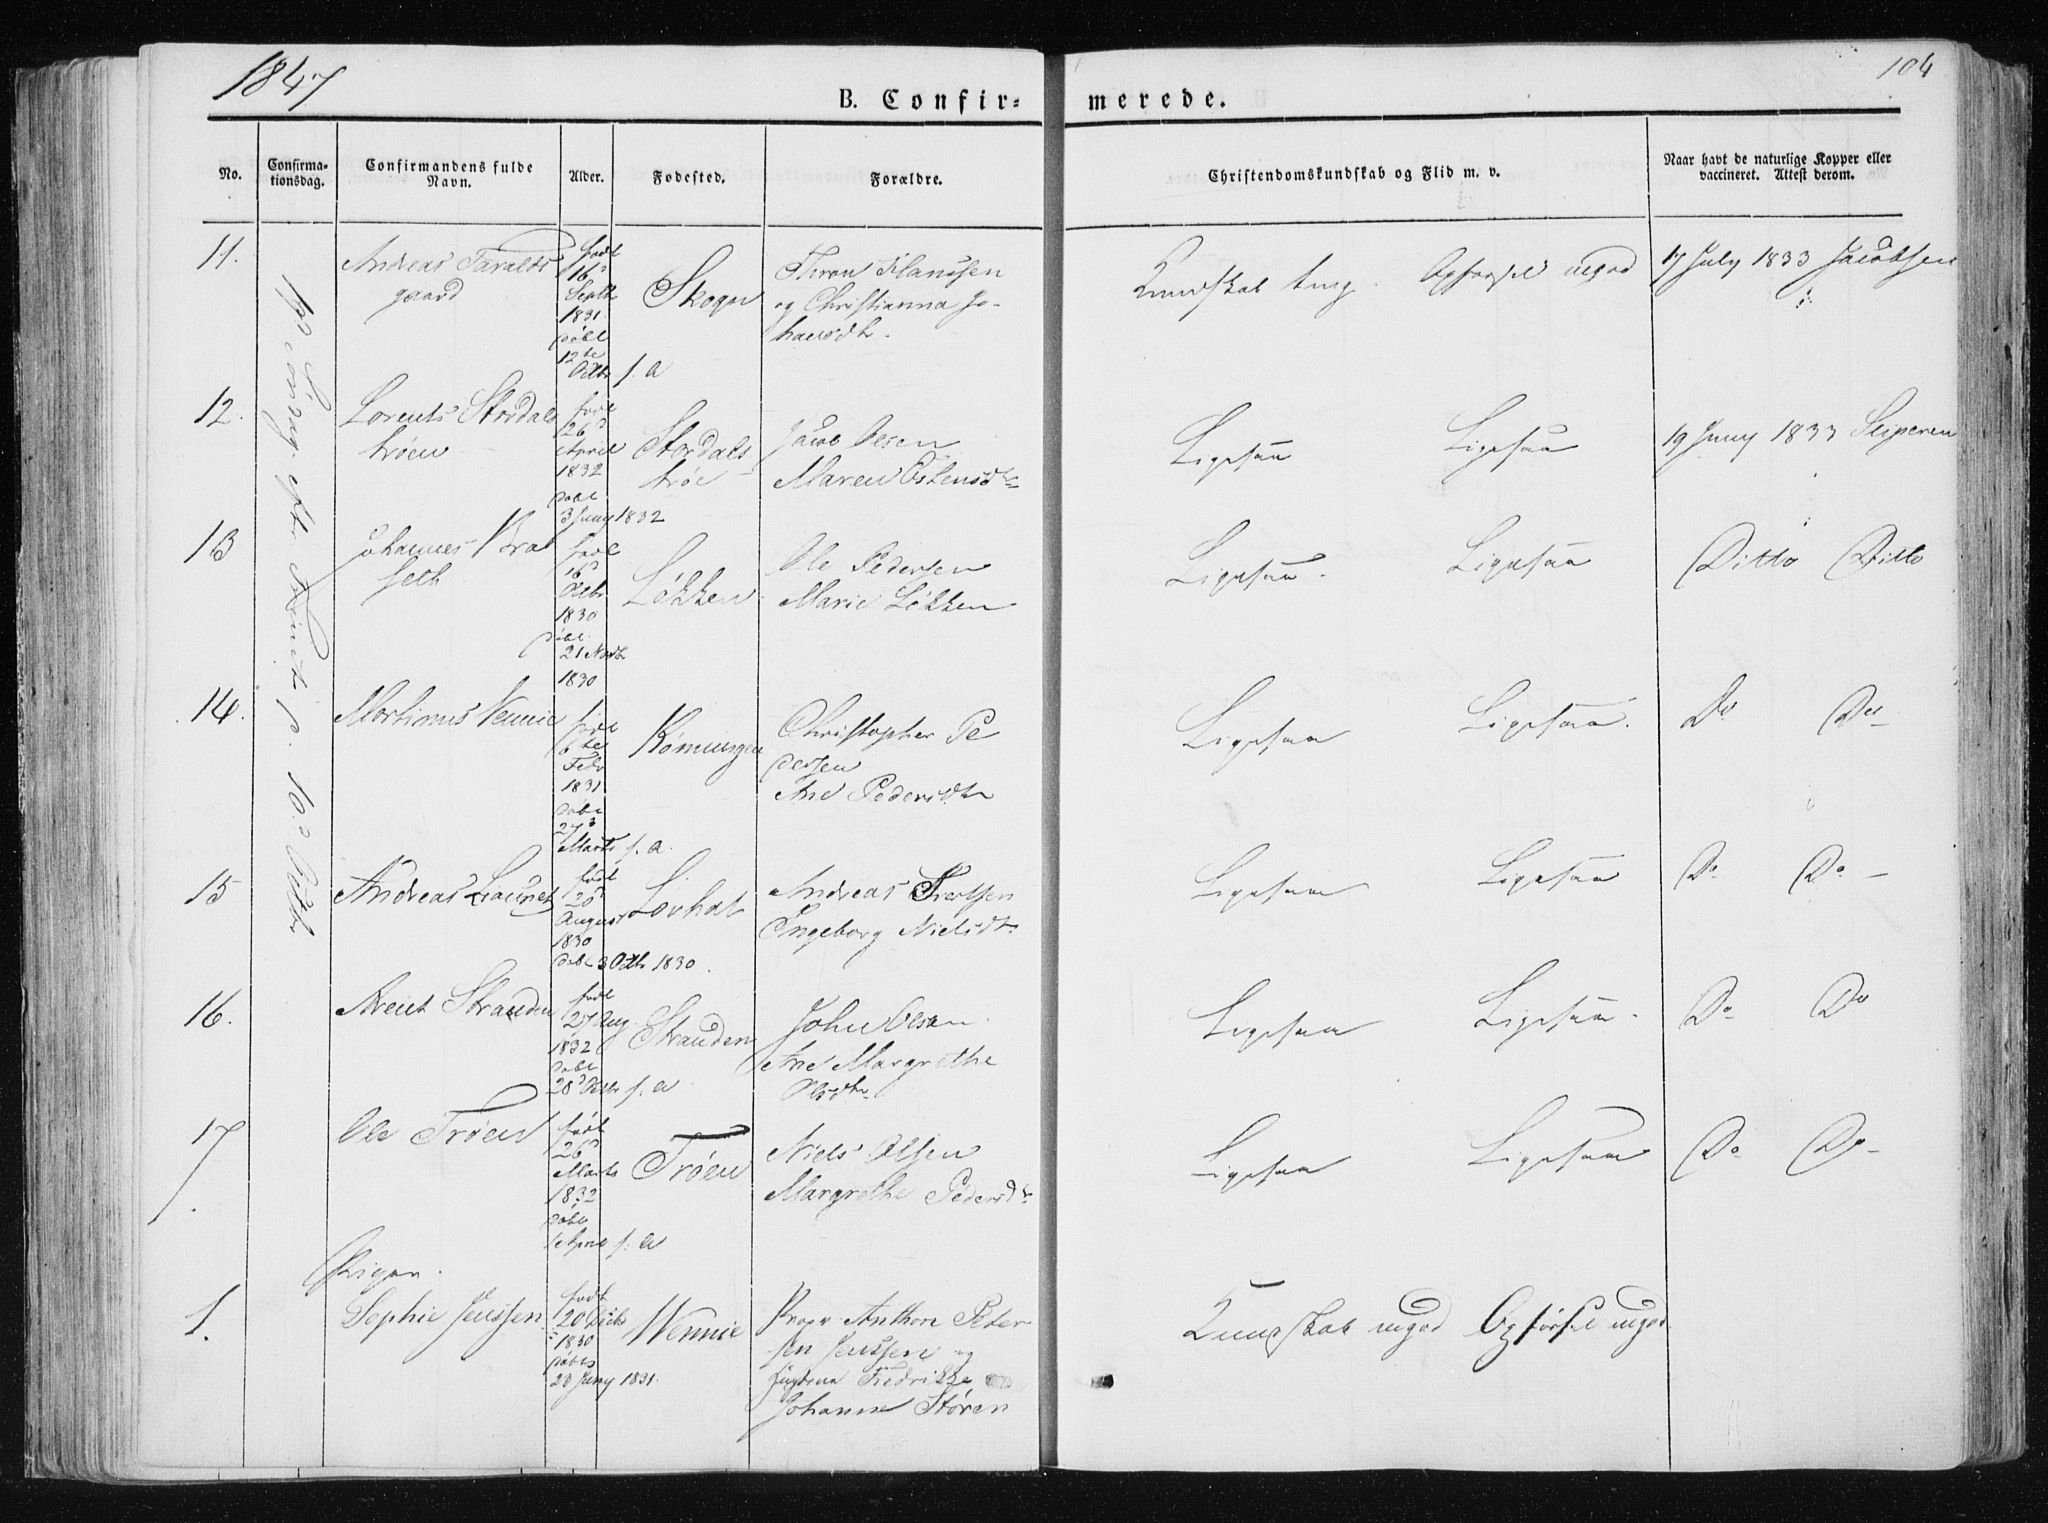 1847
104
B. Confir=
merede.
No.
Confirma-
tionsdag.
Confirmandens fulde
Navn.
Alder.
Fødested.
Forældre.
Christendomskundskab og Flid m. v.
Naar havt de naturlige Kopper eller
vaccineret. Attest derom.
11.
Andreas Taralds
gaard
født
16d
Septbr
1831
døbt
12te
Octbr f. a
Skogn
Thron Hanssen
og Christianna Jo-
hansdtr.
Kundskab
Opførsel mgod
17 July 1833 Jacobsen
12.
Lorents Stordals
trøen
født
26d
April
1832
døbt
3 Juny 1832
Stordals
trøe
Jacob Olsen
Maren Estensdtr
Ligesaa
Ligesaa
19 Juny 1833
13
Johannes Bral
seth
født
16d
Octbr
1830
døbt
21 Novb
1830
Løkken
Ole Pedersen
Marie Løkken
Ligesaa.
Ligesaa
Ditto Ditto
14.
Mortinus Vennie
født
6te
Febr
1831
døbt
27d
Marts f. a.
Christopher Pe
dersen
Ane Pedersdtr
Ligesaa
Ligesaa.
Do Do
15
Andreas
født
20d
August
1830
døbt 3 Octbr 1830.
Andreas Sivertsen
Ingeborg Nielsdtr
Ligesaa
Ligesaa
Do Do
16.
Arent Stranden
født
27 Aug
1832
døbt
28d Octbr f. a
Stranden
John Olsen
Ane Margrethe
Olsdtr
Ligesaa
Ligesaa.
Do Do
17
Ole Trøen
født
26d
Marts
1832
døbt
April f. a
Trøen
Niels Olsen
Margrethe Pedersdtr
Ligesaa
Ligesaa
Do Do
Piger.
1.
Sophie Jenssen
født
20 Decbr
1830
døbt
Juny 1831.
Wennie
Propr Anthon Peter
sen Jenssen og
Fredrikke
Johanne Støren
Kundskab mgod Opførsel mgod